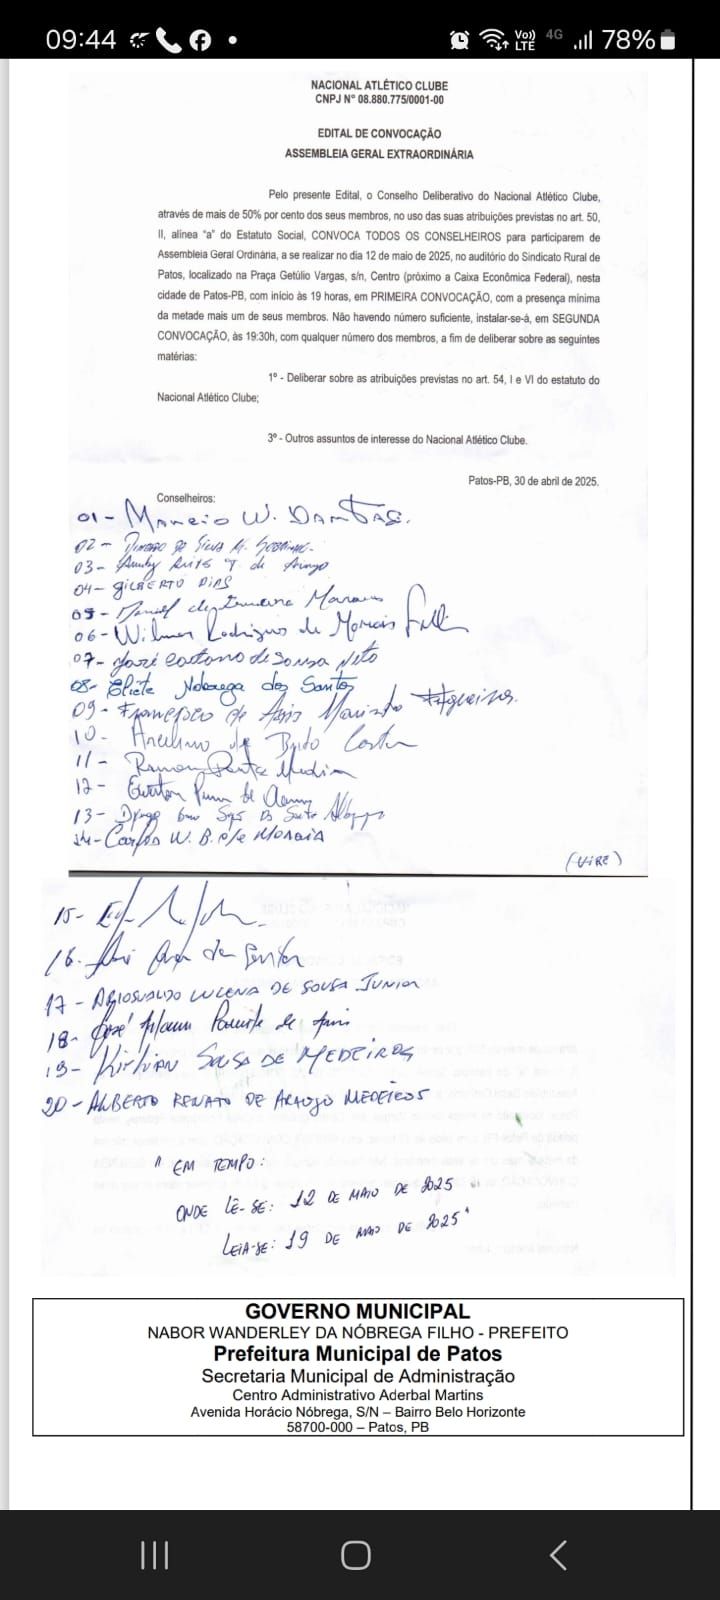 09:44
Vo)) LTE 4G 78%
NACIONAL ATLÉTICO CLUBE
CNPJ N° 08.880.775/0001-00
EDITAL DE CONVOCAÇÃO
ASSEMBLEIA GERAL EXTRAORDINÁRIA
Pelo presente Edital, o Conselho Deliberativo do Nacional Atlético Clube,
através de mais de 50% por cento dos seus membros, no uso das suas atribuições previstas no art. 50,
II, alínea “a” do Estatuto Social, CONVOCA TODOS OS CONSELHEIROS para participarem de
Assembleia Geral Ordinária, a se realizar no dia 12 de maio de 2025, no auditório do Sindicato Rural de
Patos, localizado na Praça Getúlio Vargas, s/n, Centro (próximo a Caixa Econômica Federal), nesta
cidade de Patos-PB, com início às 19 horas, em PRIMEIRA CONVOCAÇÃO, com a presença mínima
da metade mais um de seus membros. Não havendo número suficiente, instalar-se-á, em SEGUNDA
CONVOCAÇÃO, às 19:30h, com qualquer número dos membros, a fim de deliberar sobre as seguintes
matérias:
1º - Deliberar sobre as atribuições previstas no art. 54, I e VI do estatuto do
Nacional Atlético Clube;
3º - Outros assuntos de interesse do Nacional Atlético Clube.
Patos-PB, 30 de abril de 2025.
Conselheiros:
01- W. DANTAS.
02- da Silva M.
03- de Araujo
04- GILBERTO DIAS
05- Manoel de
06- Wilmar Rodrigues de Morais
07- José Caetano de Sousa Neto
08- Eliete Nobrega dos Santos
09- Francisco de Assis
10- de Brito Costa
11- Ramon
12- Everton
13-
14- Carlos W. B. de MORAIS
(VIRE)
15-
16.
17- ARIOSVALDO LUCENA DE SOUSA JUNIOR
18- José
19- Kirlian SOUSA DE MEDEIROS
20- ALBERTO RENATO DE ARAUJO MEDEIROS
" EM TEMPO:
ONDE LÊ-SE: 12 DE MAIO DE 2025
LEIA-SE: 19 DE MAIO DE 2025"
GOVERNO MUNICIPAL
NABOR WANDERLEY DA NÓBREGA FILHO - PREFEITO
Prefeitura Municipal de Patos
Secretaria Municipal de Administração
Centro Administrativo Aderbal Martins
Avenida Horácio Nóbrega, S/N – Bairro Belo Horizonte
58700-000 – Patos, PB